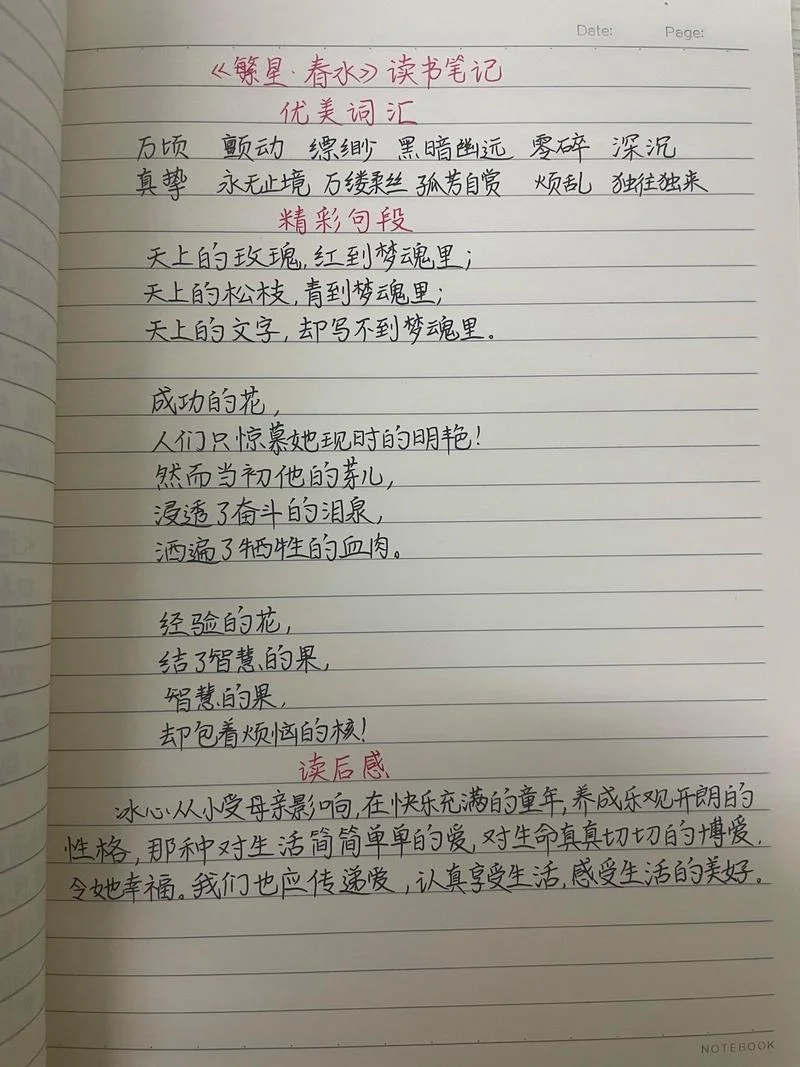 Date: Page:
《繁星·春水》读书笔记
优美词汇
万顷 颤动 缥缈 黑暗幽远 零碎 深沉
真挚 永无止境 万缕柔丝 孤芳自赏 烦乱 独往独来
精彩句段
天上的玫瑰,红到梦魂里;
天上的松枝,青到梦魂里;
天上的文字,却写不到梦魂里。
成功的花,
人们只惊慕她现时的明艳!
然而当初他的芽儿,
浸透了奋斗的泪泉,
洒遍了牺牲的血肉。
经验的花,
结了智慧的果,
智慧的果,
却包着烦恼的核!
读后感
冰心从小受母亲影响,在快乐充满的童年,养成乐观开朗的
性格,那种对生活简简单单的爱,对生命真真切切的博爱.
令她幸福。我们也应传递爱,认真享受生活,感受生活的美好。
NOTEBOOK